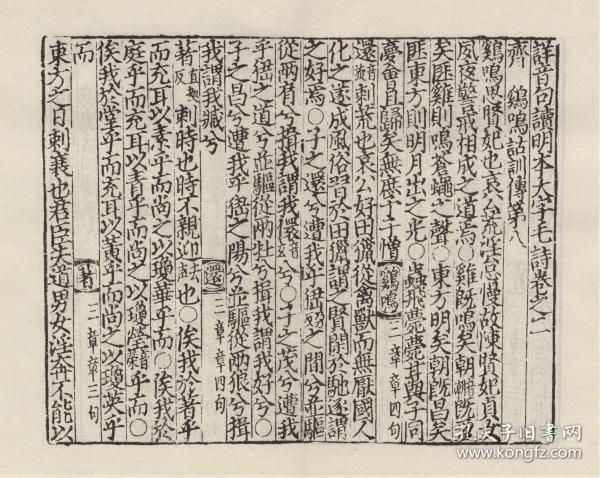 詳音句讀明本大字毛詩卷之二
齊 鷄鳴詁訓傳第八
鷄鳴思賢妃也哀公荒淫怠慢故陳賢妃貞女
夙夜警戒相成之道焉○雞既鳴矣朝既
矣匪雞則鳴蒼蠅之聲○東方明矣朝既昌矣
匪東方則明月出之光○蟲飛薨薨甘與子同
夢會且歸矣無庶予子憎 鷄鳴三章章四句
還音旋刺荒也哀公好田獵從禽獸而無厭國人
化之遂成風俗習於田獵謂之賢閑於馳逐謂
之好焉○子之還兮遭我乎峱之間兮並驅
從兩肩兮揖我謂我儇兮○子之茂兮遭我
乎峱之道兮並驅從兩牡兮揖我謂我好兮○
子之昌兮遭我乎峱之陽兮並驅從兩狼兮揖
我謂我臧兮 還三章章四句
著直據反刺時也時不親迎也○俟我於著乎
而充耳以素乎而尚之以瓊華乎而○俟我於
庭乎而充耳以青乎而尚之以瓊瑩乎而○
俟我於堂乎而充耳以黃乎而尚之以瓊英乎
而 著三章章三句
東方之日刺衰也君臣失道男女淫奔不能以
孔夫子旧书网
www.kongfz.com